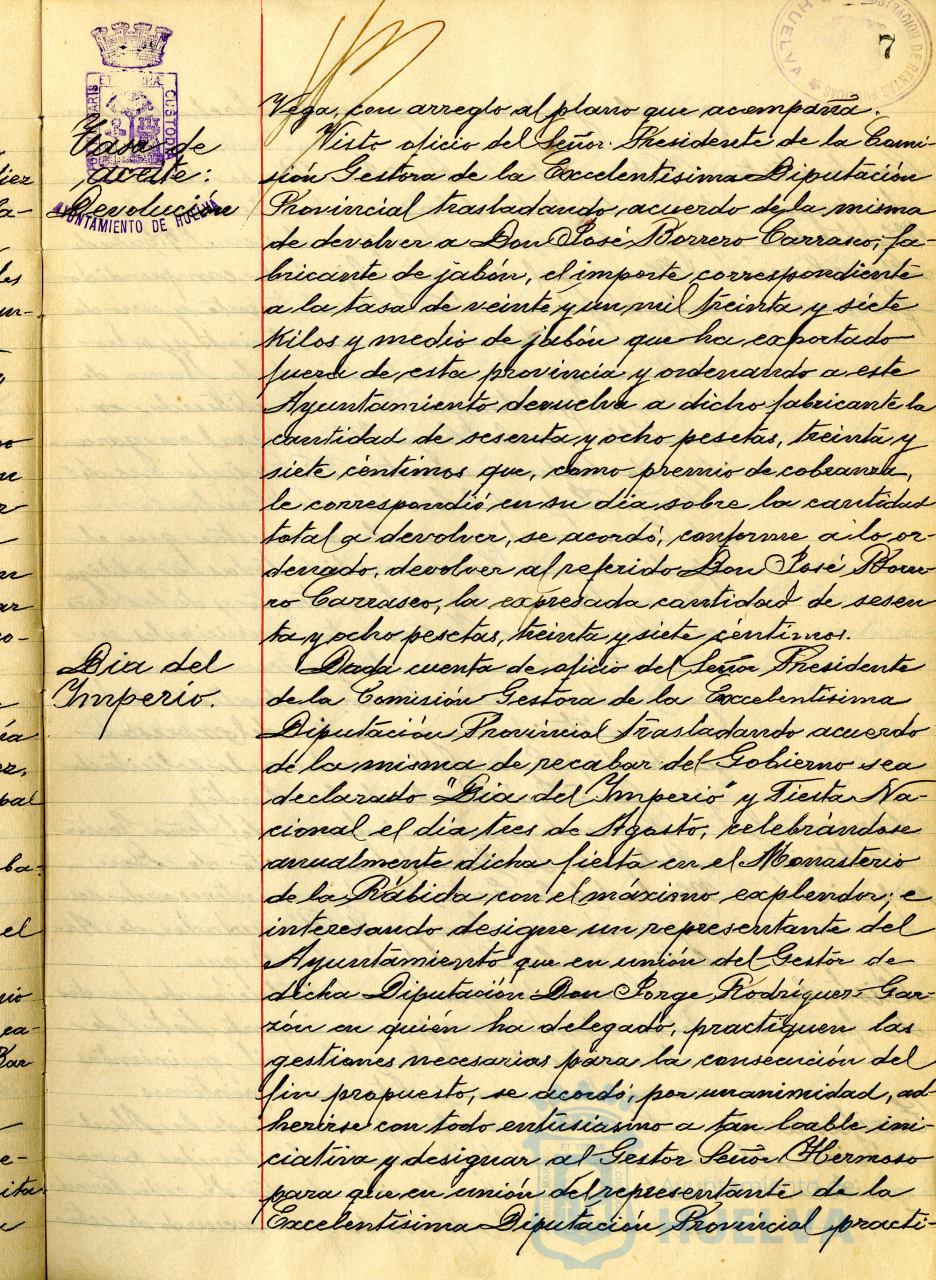 7
Vega, con arreglo al plano que acompaña.
Tasa de
aceite:
Devolución
AYUNTAMIENTO DE HUELVA
Visto oficio del Señor Presidente de la Comi-
sión Gestora de la Excelentísima Diputación
Provincial trasladando acuerdo de la misma
de devolver a Don José Borrero Carrasco, fa-
bricante de jabón, el importe correspondiente
a la tasa de veinte y un mil treinta y siete
Kilos y medio de jabón que ha exportado
fuera de esta provincia y ordenando a este
Ayuntamiento devuelva a dicho fabricante la
cantidad de sesenta y ocho pesetas, treinta y
siete céntimos que, como premio de cobranza,
le correspondió, en su dia, sobre la cantidad
total a devolver, se acordó, conforme a lo or-
denado, devolver al referido Don José Borre-
ro Carrasco, la expresada cantidad de sesen
ta y ocho pesetas, treinta y siete céntimos.
Dia del
Imperio.
Dada cuenta de oficio del Señor Presidente
de la Comisión Gestora de la Excelentísima
Diputación Provincial trasladando acuerdo
de la misma de recabar del Gobierno sea
declarado "Dia del Imperio" y Fiesta Na-
cional el día tres de Agosto, celebrándose
anualmente dicha fiesta en el Monasterio
de la Rábida con el máximo explendor; e
interesando designe un representante del
Ayuntamiento que en unión del Gestor de
dicha Diputación Don Jorge Rodríguez Gar-
zón en quién ha delegado, practiquen las
gestiones necesarias para la consecución del
fin propuesto, se acordó, por unanimidad, ad
herirse con todo entusiasmo a tan loable ini-
ciativa y designar al Gestor Señor Hermoso
para que en unión del representante de la
Excelentísima Diputación Provincial practi-
Ayuntamiento de
HUELVA